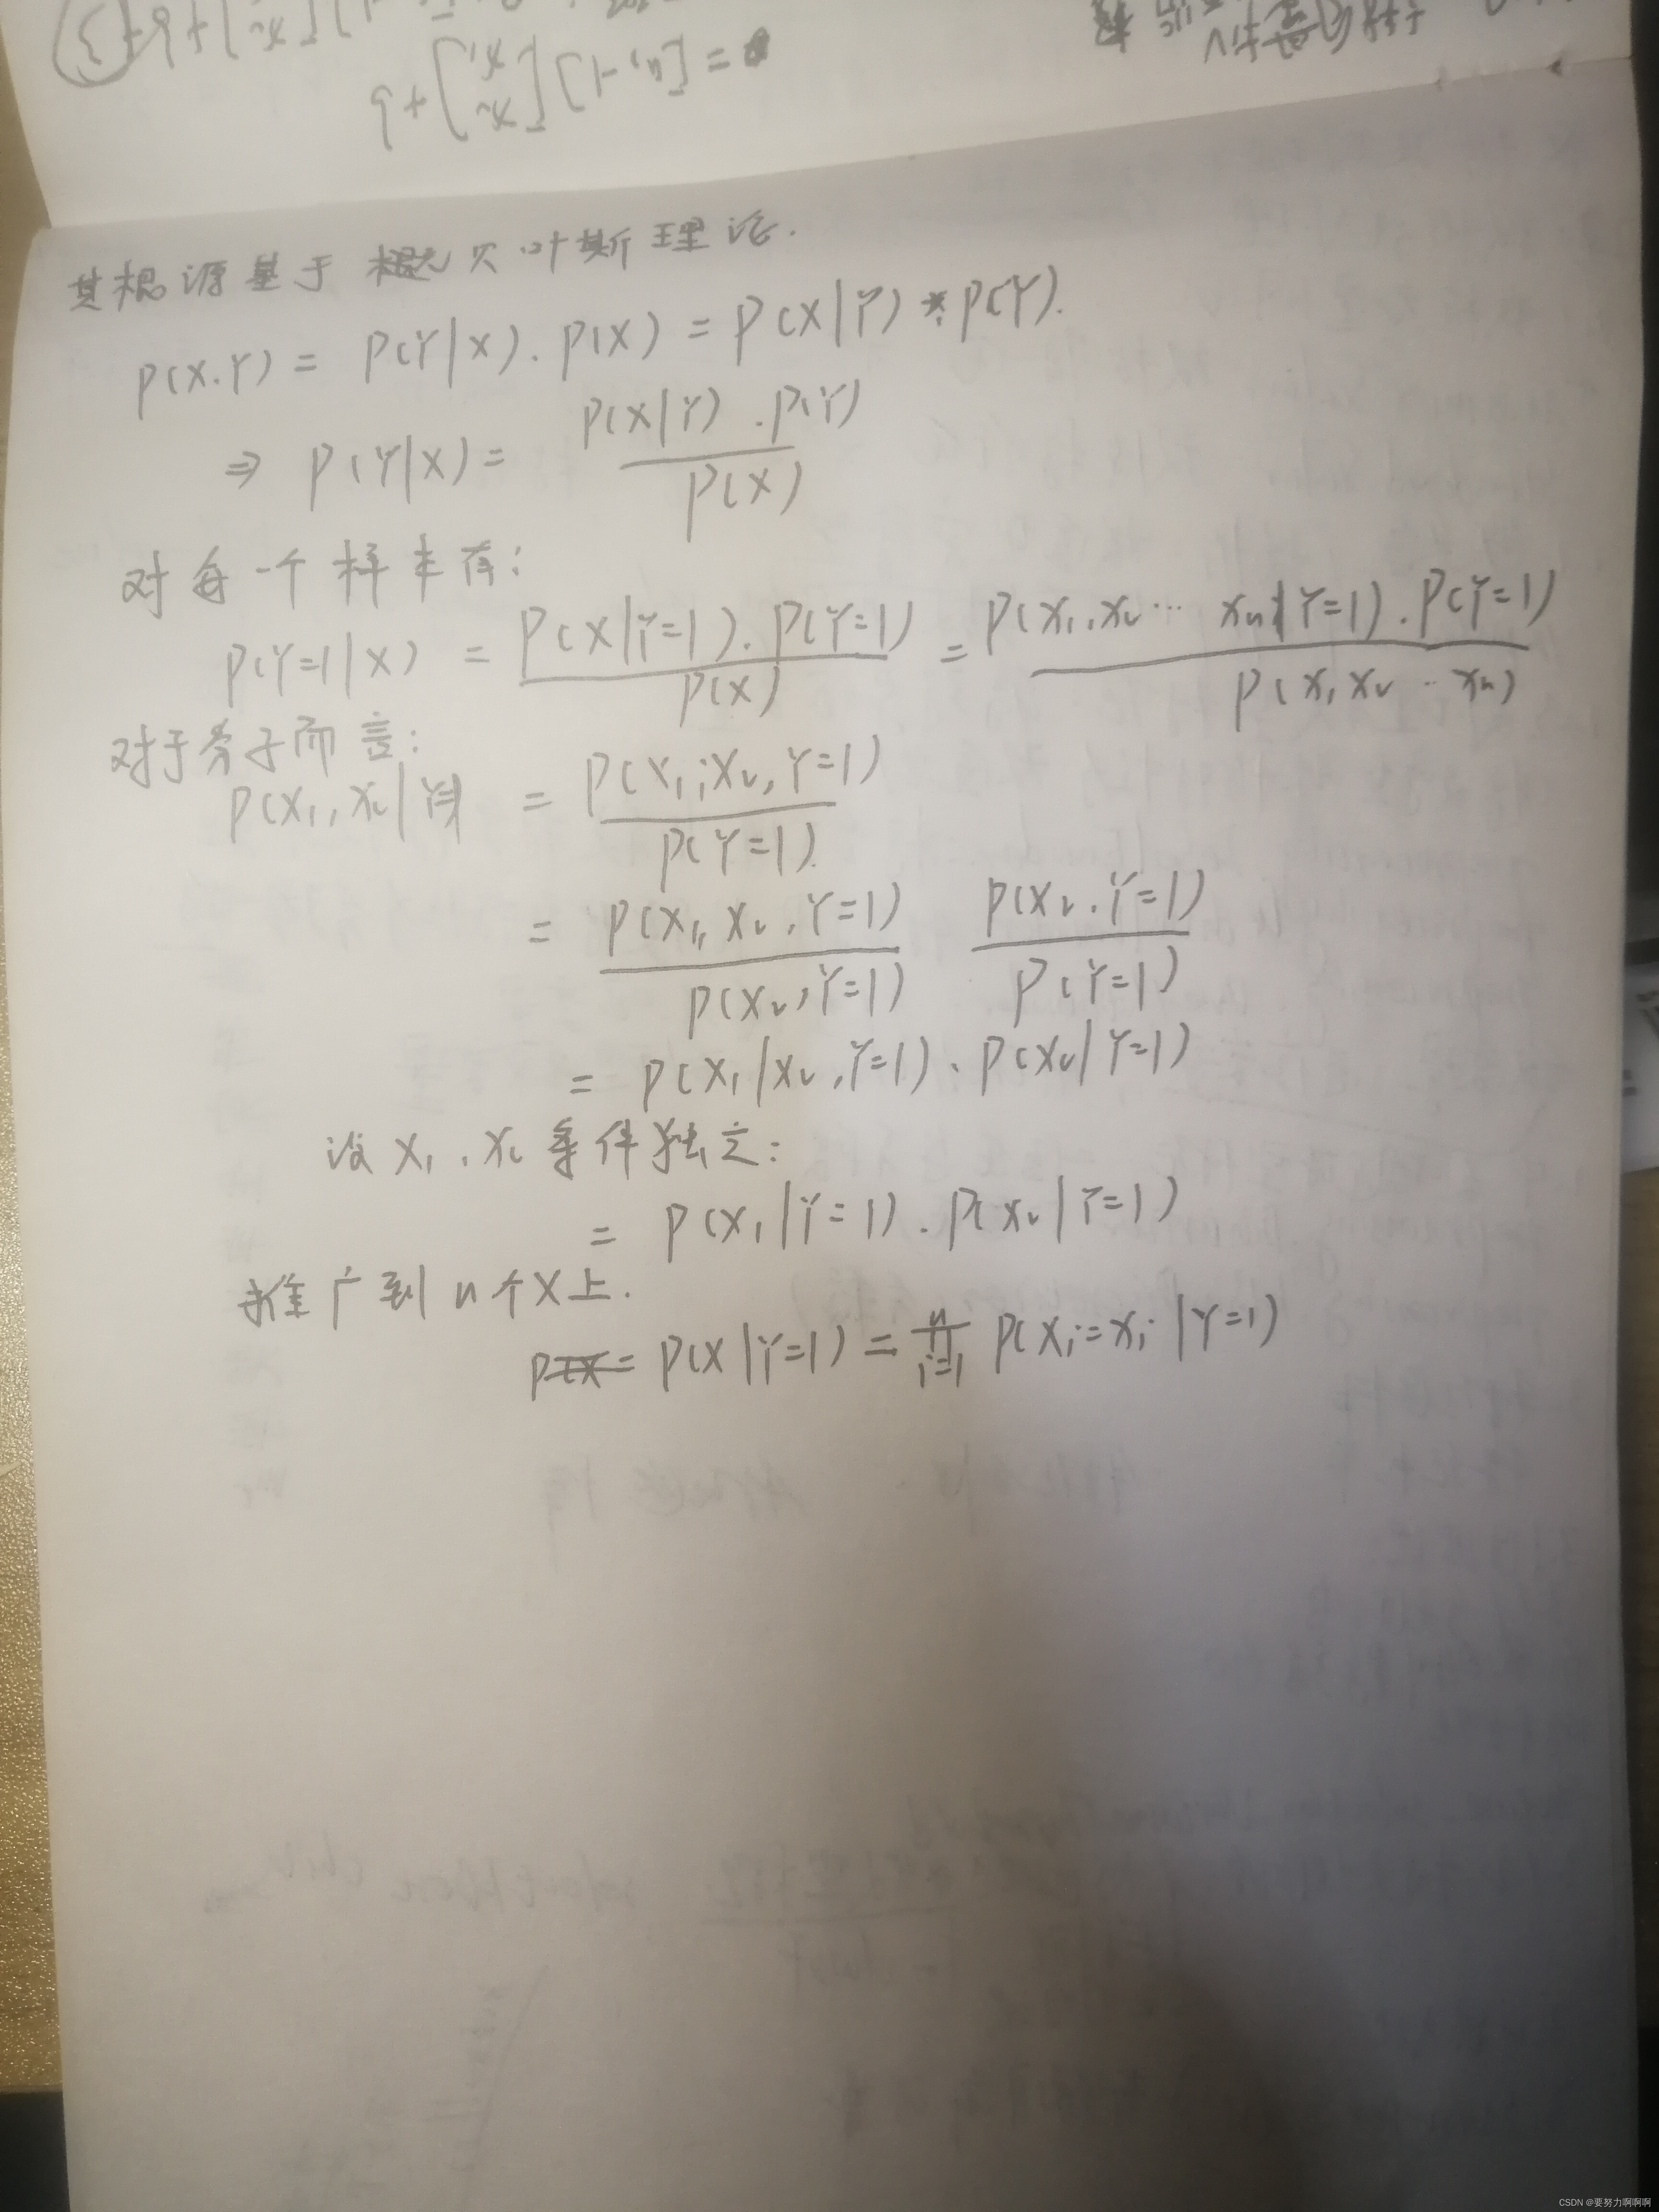 = [1, -1] [x₁ x₂] + b
其根源基于概贝叶斯理论.
P(X.Y) = P(Y|X). P(X) = P(X|Y) * P(Y).
⇒ P(Y|X) = P(X|Y) . P(Y) / P(X)
对每一个样本有:
P(Y=1|X) = P(X|Y=1). P(Y=1) / P(X) = P(x₁, x₂ ... xₙ|Y=1). P(Y=1) / P(x₁ x₂ .. xₙ)
对于分子而言:
P(x₁, x₂|Y=1) = P(x₁, x₂, Y=1) / P(Y=1).
= P(x₁, x₂, Y=1) / P(x₂, Y=1) P(x₂, Y=1) / P(Y=1)
= P(x₁|x₂, Y=1) . P(x₂|Y=1)
设 x₁, x₂ 条件独立:
= P(x₁|Y=1) . P(x₂|Y=1)
推广到 n个X上.
P(X|Y=1) = ∏ⁿᵢ₌₁ P(Xᵢ=xᵢ|Y=1)
CSDN @要努力啊啊啊